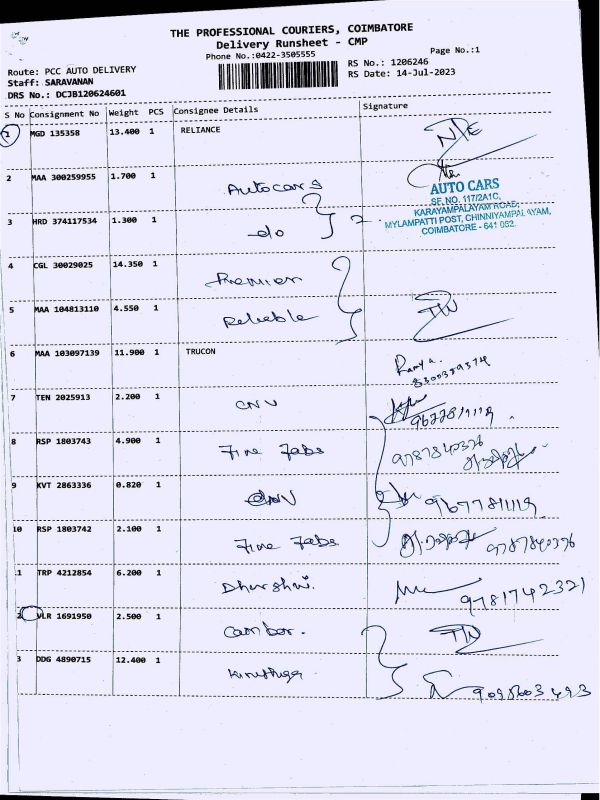 THE PROFESSIONAL COURIERS, COIMBATORE
Delivery Runsheet - CMP
Phone No.:0422-3505555
Page No.:1
Route: PCC AUTO DELIVERY
Staff: SARAVANAN
DRS No.: DCJB120624601
RS No.: 1206246
RS Date: 14-Jul-2023
S No Consignment No Weight PCS Consignee Details Signature
1 MGD 135358 13.400 1 RELIANCE N/E
2 MAA 300259955 1.700 1 Autocars
AUTO CARS
SF. NO. 117/2A1C,
KARAYAMPALAYAM ROAD,
MYLAMPATTI POST, CHINNIYAMPALAYAM,
COIMBATORE - 641 062.
3 HRD 374117534 1.300 1 do 2
4 CGL 30029025 14.350 1 Premier
5 MAA 104813110 4.550 1 Reliable
6 MAA 103097139 11.900 1 TRUCON
7 TEN 2025913 2.200 1 CNV
8 RSP 1803743 4.900 1 Fine Fabs 9787840326
9 KVT 2863336 0.820 1 CNV
10 RSP 1803742 2.100 1 Fine Fabs 9787840326
1 TRP 4212854 6.200 1 9781742321
2 VLR 1691950 2.500 1
3 DDG 4890715 12.400 1